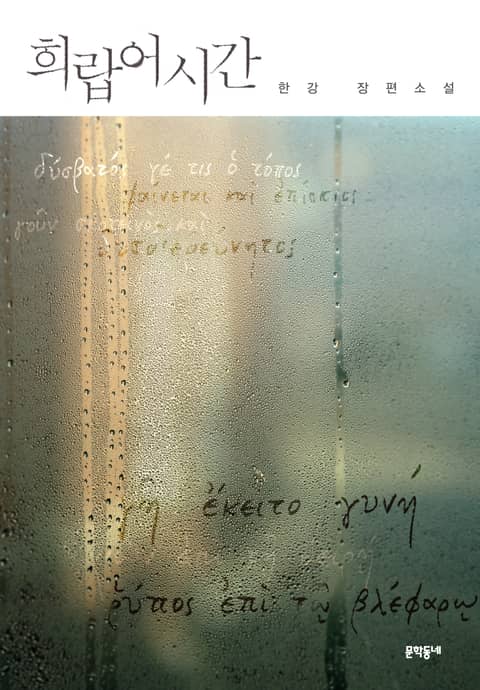 희랍어 시간
한강 장편소설
δύσβατός γέ τις ὁ τόπος
φαίνεται καὶ ἐπίσκιος
γοῦν σκοτεινὸς καὶ
ἔκειτο γυνή
ῥύπος ἐπὶ τῷ βλέφαρῳ
문학동네